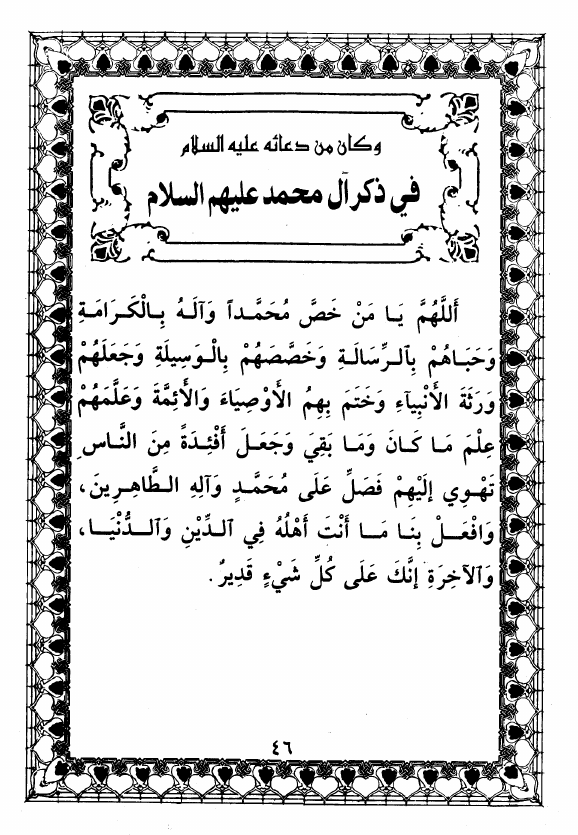 وكان من دعائه عليه السلام
في ذكر آل محمد عليهم السلام
أَللَّهُمَّ يَا مَنْ خَصَّ مُحَمَّداً وَآلَهُ بِالْكَرَامَةِ
وَحَبَاهُمْ بِٱلرِّسَالَةِ وَخَصَّصَهُمْ بِالْوَسِيلَةِ وَجَعَلَهُمْ
وَرَثَةَ الأَنْبِيآءِ وَخَتَمَ بِهِمُ الأَوْصِيَاءَ وَالأَئِمَّةَ وَعَلَّمَهُمْ
عِلْمَ مَا كَانَ وَمَا بَقِيَ وَجَعَلَ أَفْئِدَةً مِنَ النَّاسِ
تَهْوِي إِلَيْهِمْ فَصَلِّ عَلَى مُحَمَّدٍ وَآلِهِ الطَّاهِرِينَ،
وَافْعَلْ بِنَا مَا أَنْتَ أَهْلُهُ فِي ٱلدِّيْنِ وَٱلدُّنْيَا،
وَٱلآخِرَةِ إِنَّكَ عَلَى كُلِّ شَيْءٍ قَدِيرٌ.
٤٦